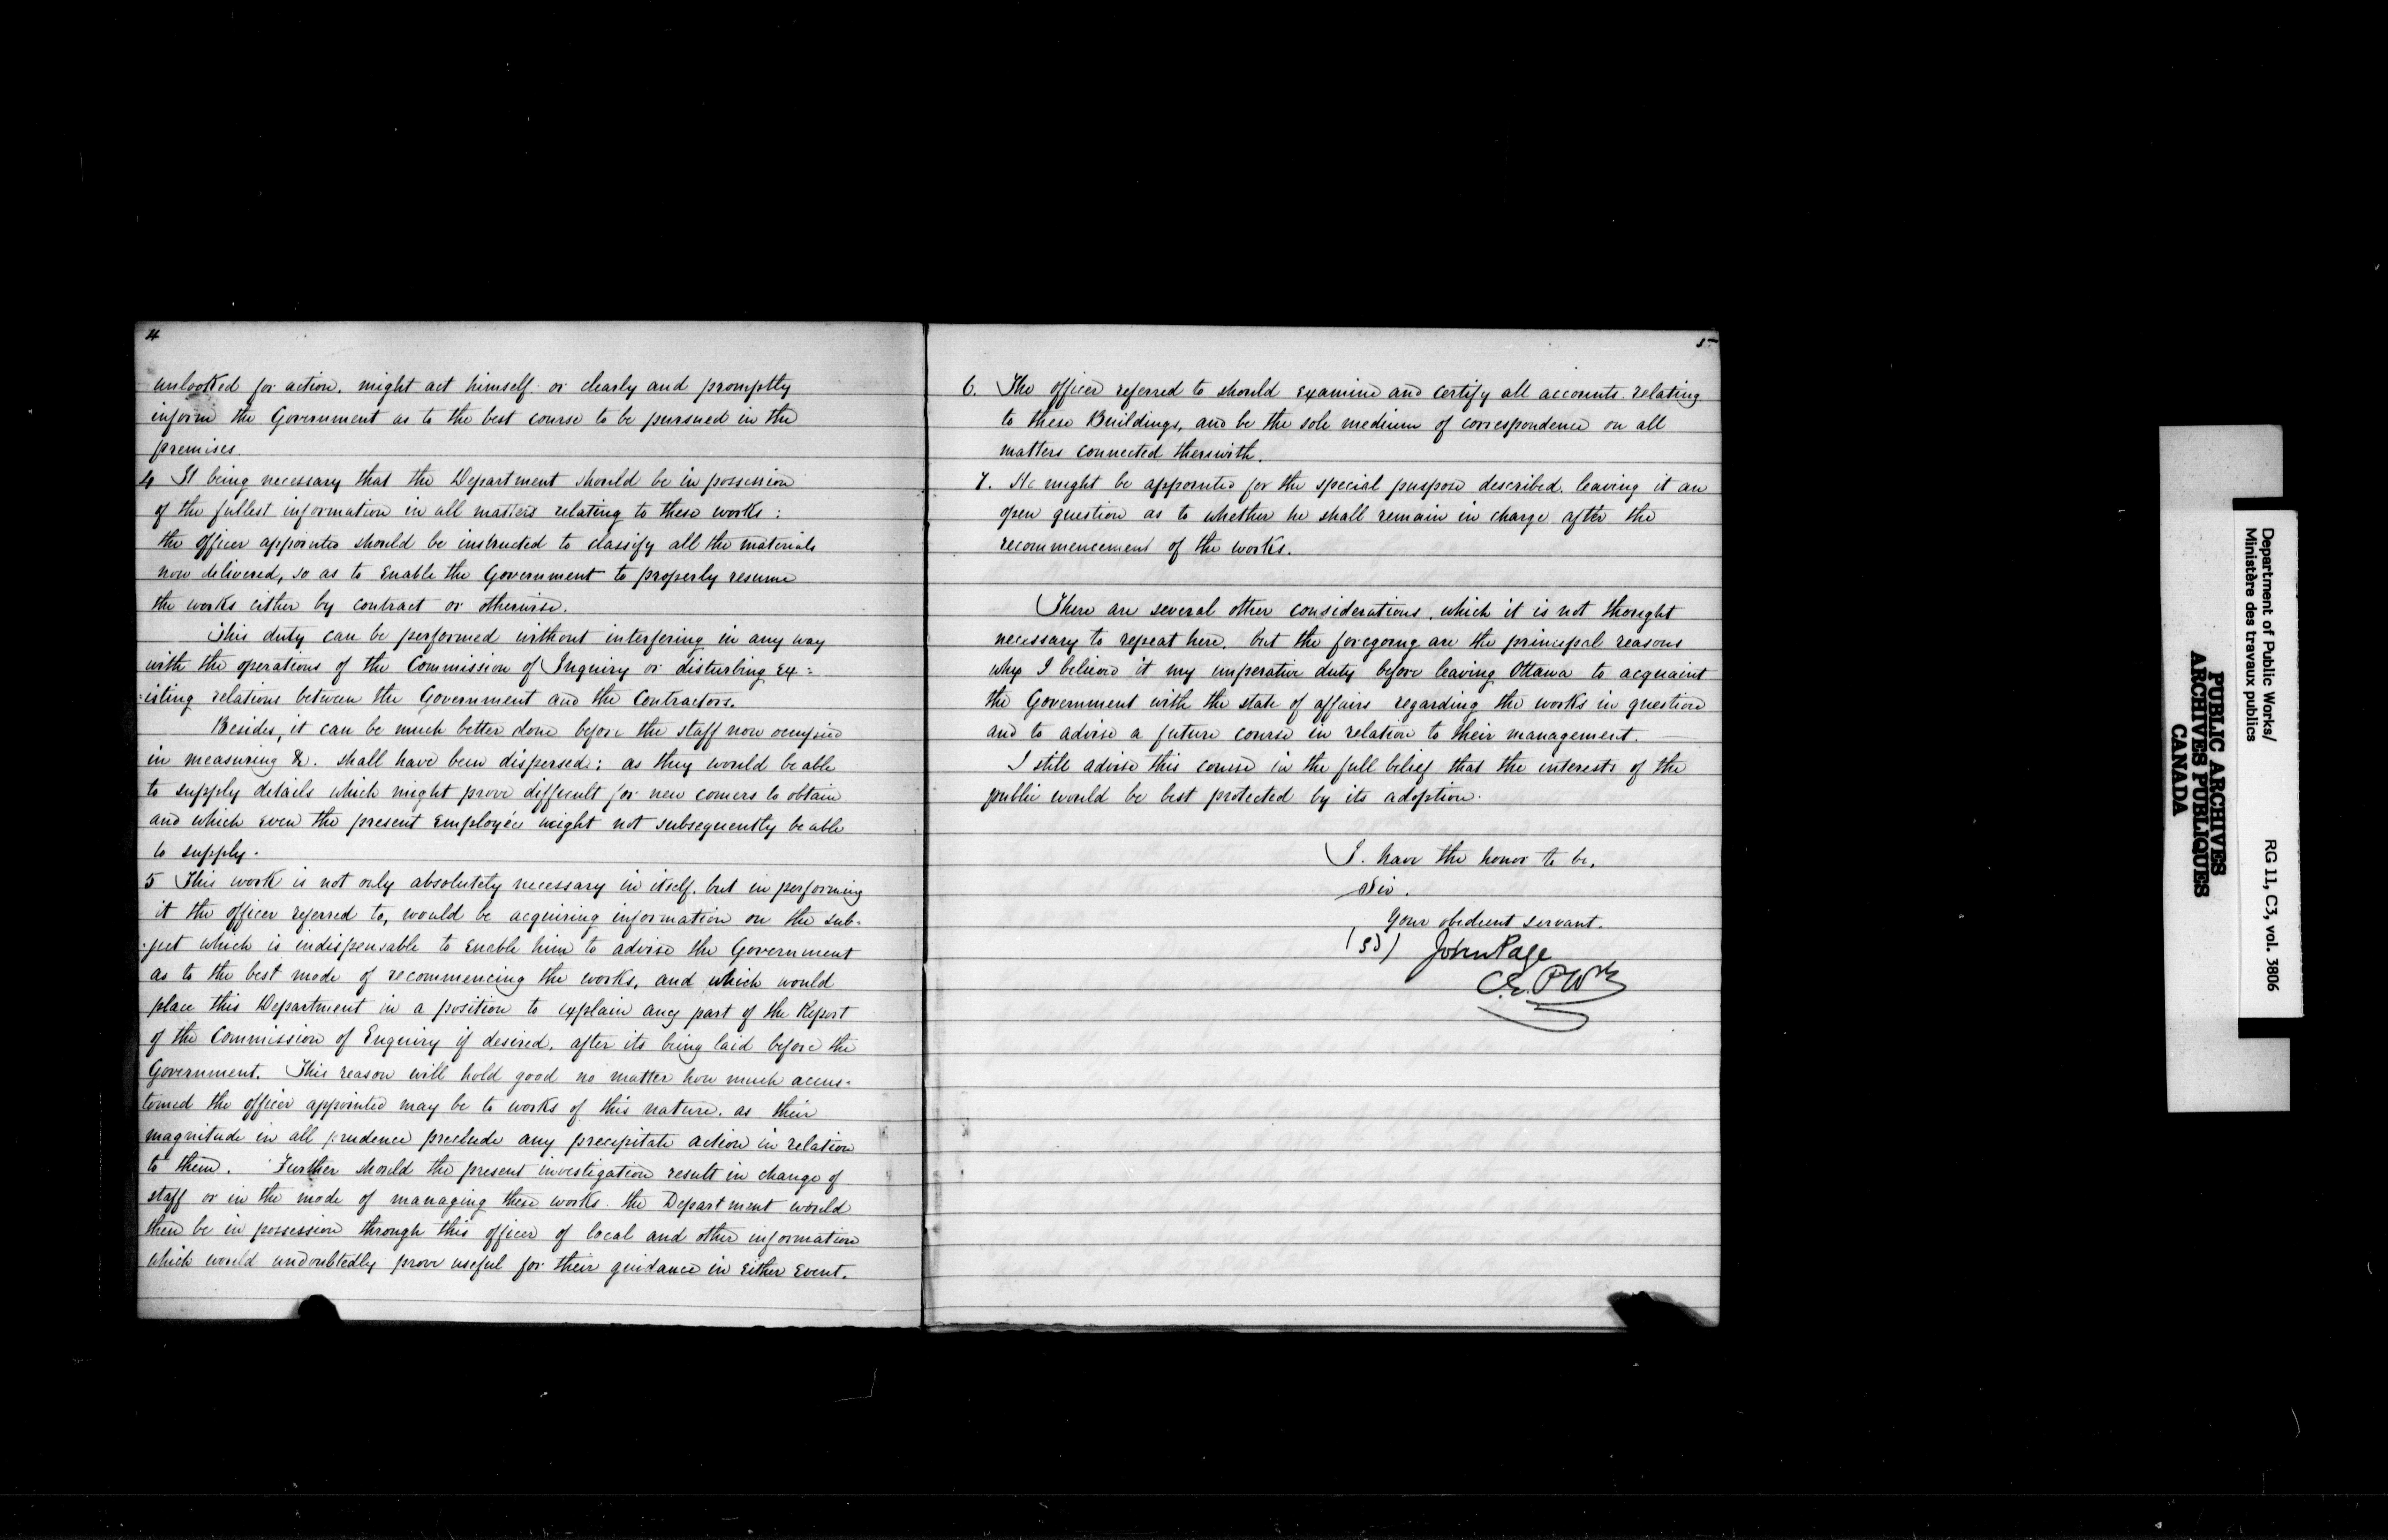 4
unlooked for action. might act himself or clearly and promptly
inform the Government as to the best course to be pursued in the
premises.
4 It being necessary that the Department should be in possession
of the fullest information in all matters relating to these works :
the officer appointed should be instructed to classify all the materials
now delivered, so as to enable the Government to properly resume
the works either by contract or otherwise.
This duty can be performed without interfering in any way
with the operations of the Commission of Inquiry or disturbing ex=
=isting relations between the Government and the Contractors.
Besides, it can be much better done before the staff now occupied
in measuring &. shall have been dispersed; as they would be able
to supply details which might prove difficult for new comers to obtain
and which even the present employée might not subsequently be able
to supply.
5 This work is not only absolutely necessary in itself. but in performing
it the officer referred to, would be acquiring information on the sub-
-ject which is indispensable to enable him to advise the Government
as to the best mode of recommencing the works, and which would
place this Department in a position to explain any part of the Report
of the Commission of Enquiry if desired. after its being laid before the
Government. This reason will hold good no matter how much accus-
tomed the officer appointed may be to works of this nature. as their
magnitude in all prudence preclude any precipitate action in relation
to them. Further should the present investigation result in change of
staff or in the mode of managing these works. the Department would
then be in possession through this officer of local and other information
which would undoubtedly prove useful for their guidance in either event.
5
6. The officer referred to should examine and certify all accounts relating
to these Buildings, and be the sole medium of correspondence on all
matters connected therewith.
7. He might be appointed for the special purpose described. leaving it an
open question as to whether he shall remain in charge after the
recommencement of the works.
There are several other considerations. which it is not thought
necessary to repeat here. but the foregoing are the principal reasons
why I believed it my imperative duty before leaving Ottawa to acquaint
the Government with the state of affairs regarding the works in question
and to advise a future course in relation to their management.
I still advise this course in the full belief that the interests of the
public would be best protected by its adoption.
I. have the honor to be,
Sir.
Your obedient servant.
(sd) John Page
C.E. P Wks
Department of Public Works/
Ministère des travaux publics
RG 11, C3, vol. 3806
PUBLIC ARCHIVES
ARCHIVES PUBLIQUES
CANADA